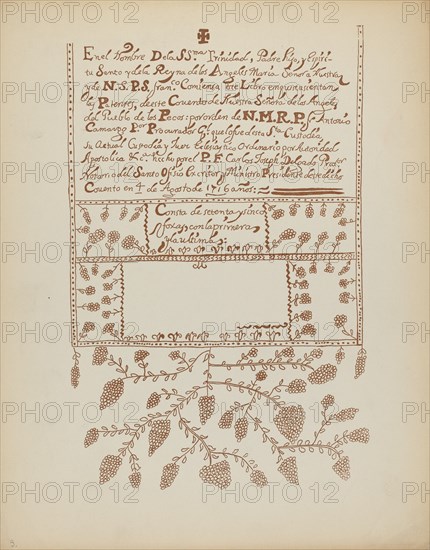 En el Nombre De la SS.ma Trinidad, Padre Hijo, y Espiri-
tu Santo y de la Reyna de los Angeles Maria Señora Nuestra
y de N.S.P.S. Fran.co Comiensa este Libro en que se asientan
las Patentes, de este Convento de Nuestra Señora de los Angeles
del Pueblo de los Pecos: por orden de N.M.R.P. Fr. Antonio
Camargo Por Procurador G.l que fue de esta S.ta Custodia,
Su Actual Custodio y Juez Eclesiastico Ordinario por Autoridad
Apostolica &.a hecho por el P. F. Carlos Joseph Delgado Pre.dor
Notorio del Santo Ofisio Ex cristor y Ministro Presidente de dicho
Convento en 4 de Agosto de 1716 años:
Consta de setenta y sinco
foxas con la primera
y la ultima:
3.
PHOTO 12